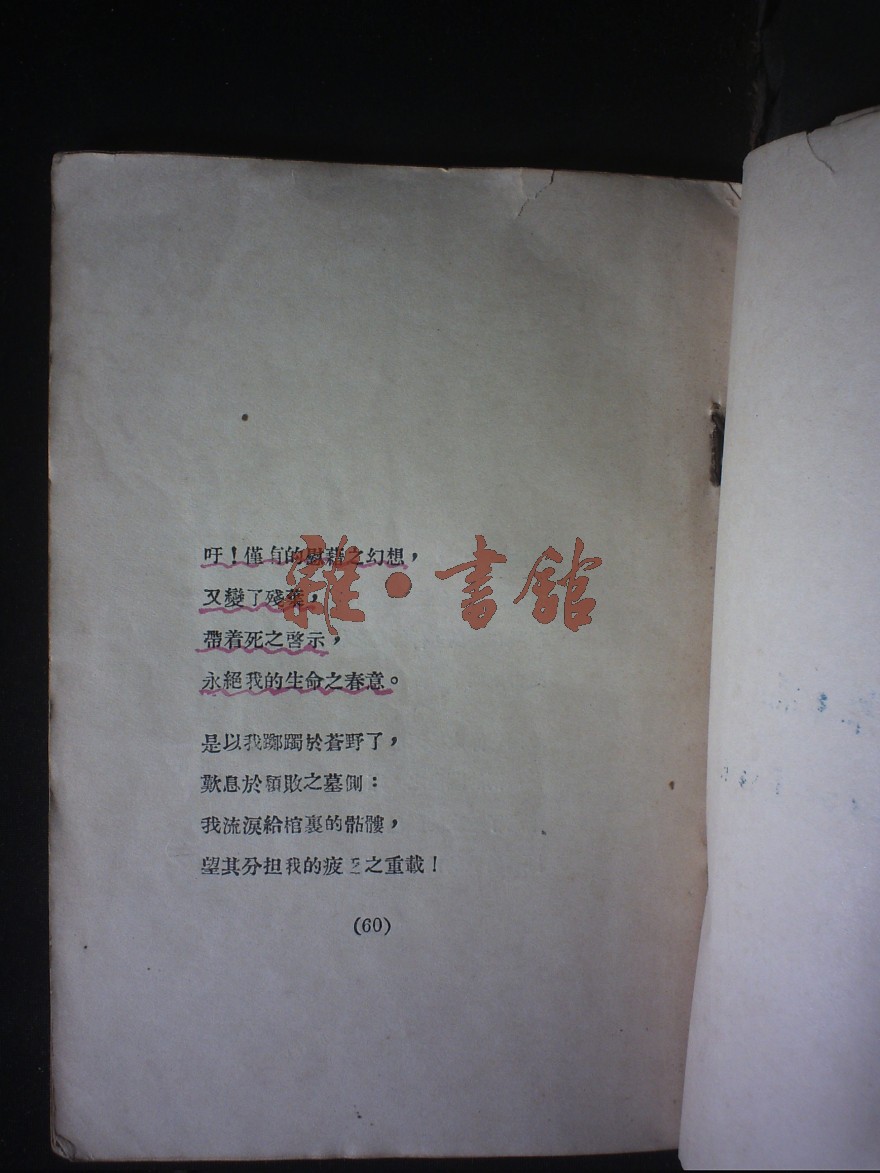 吁！僅有的慰藉之幻想，
又變了殘葉，
帶着死之啓示，
永絕我的生命之春意。
是以我躑躅於蒼野了，
歎息於頹敗之墓側：
我流淚給棺裏的骷髏，
望其分担我的疲乏之重載！
(60)
雜·書館